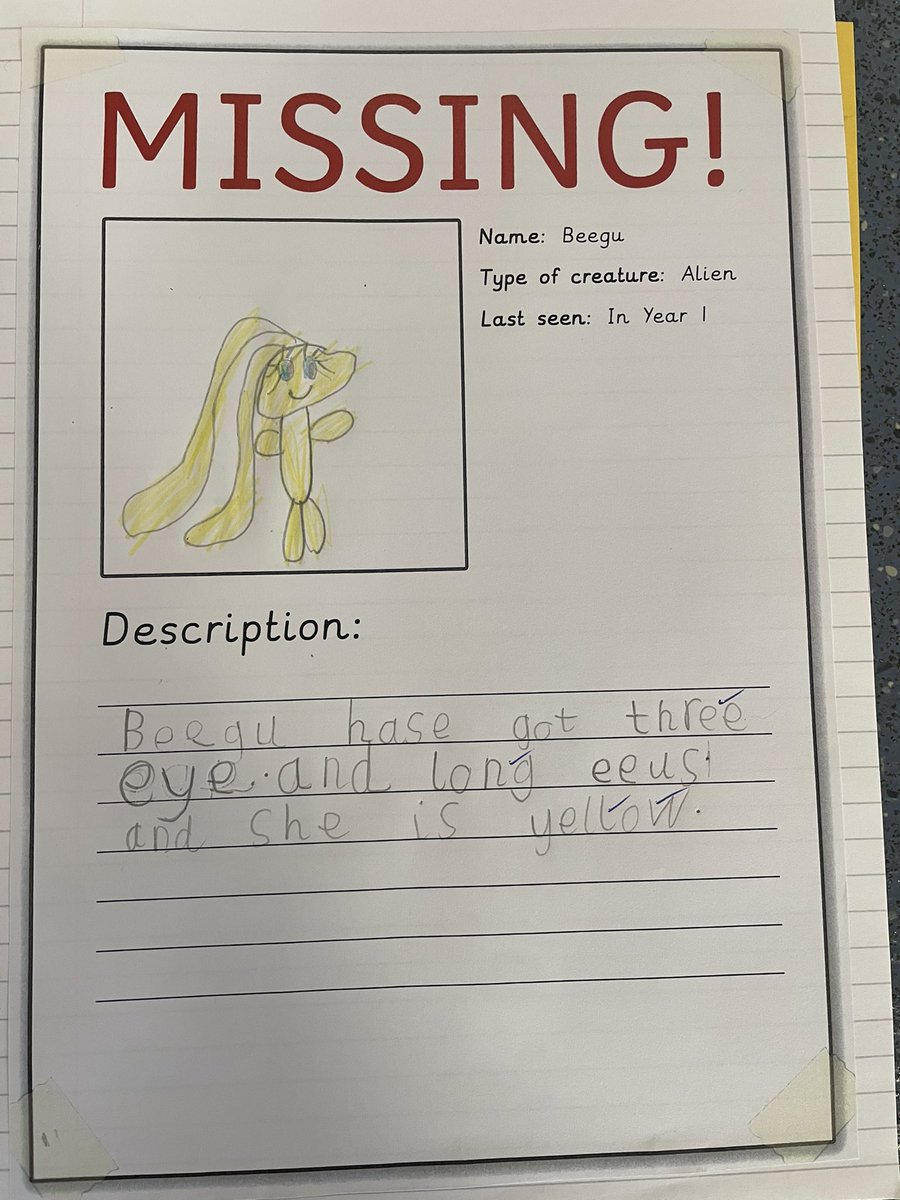 MISSING!
Name: Beegu
Type of creature: Alien
Last seen: In Year 1
Description:
Beegu hase got three
eye. and long eeus
and she is yellow.